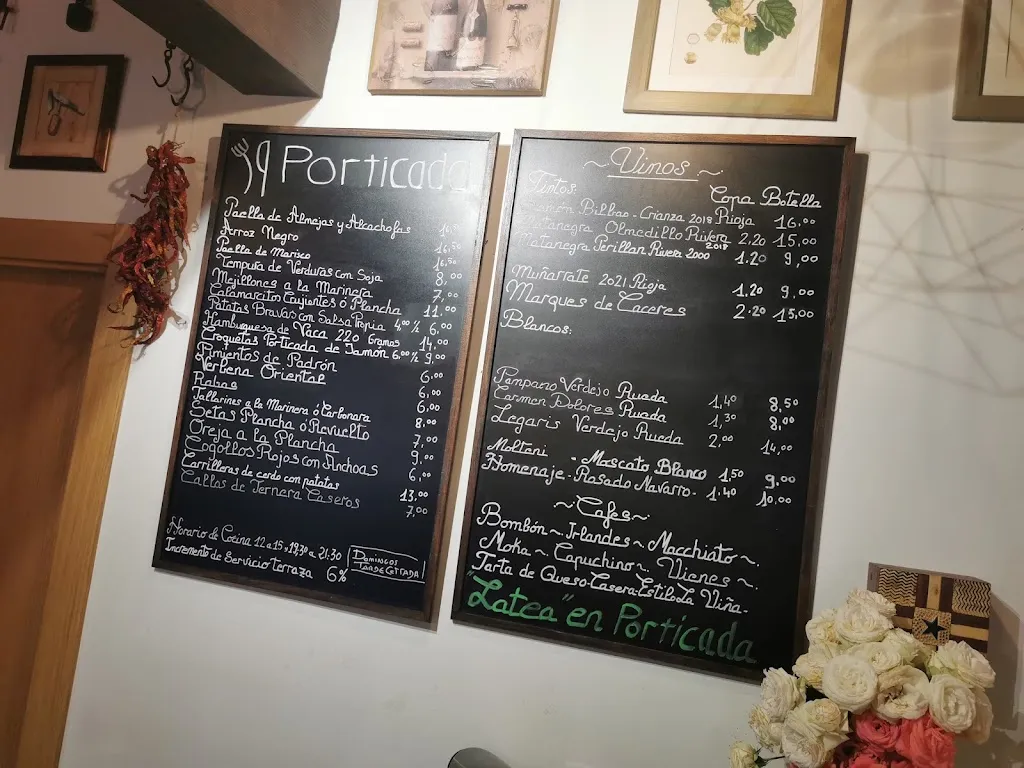 Porticada
Paella de Almejas y Alcachofas 16,50
Arroz Negro 16,50
Paella de Marisco 16,50
Tempura de Verduras con Soja 8,00
Mejillones a la Marinera 7,00
Calamarcitos Crujientes ó Plancha 11,00
Patatas Bravas con Salsa Propia 4,00 ½ 6,00
Hamburguesa de Vaca 220 Gramos 14,00
Croquetas Porticada de Jamón 6,00 ½ 9,00
Pimientos de Padrón 6,00
Verbena Oriental 6,00
Rabas 6,00
Tallarines a la Marinera ó Carbonara 8,00
Setas Plancha ó Revuelto 7,00
Oreja a la Plancha 9,00
Cogollos Rojos con Anchoas 6,00
Carrilleras de cerdo con patatas 13,00
Callos de Ternera Caseros 7,00
Horario de Cocina 12 a 15 y 19,30 a 21,30
Incremento de Servicio Terraza 6%
Domingos
Tarde Cerrada
~ Vinos ~
Tintos: Copa Botella
Ramón Bilbao - Crianza 2018 Rioja 16,00
Matanegra Olmedillo Rivera 2,20 15,00
Matanegra Perillan River 2000 2018 1.20 9,00
Muñarrate 2021 Rioja 1,20 9,00
Marques de Caceres 2.20 15,00
Blancos:
Pampano Verdejo Rueda 1,40 8,50
Carmen Dolores Rueda 1,30 8,00
Legaris Verdejo Rueda 2,00 14,00
Moltani - Moscato Blanco 1,50 9,00
Homenaje - Rosado Navarro - 1.40 10,00
~ Cafes ~
Bombón ~ Irlandes ~ Macchiato ~.
Moka ~ Capuchino ~ Vienes ~.
Tarta de Queso Casera Estilo La Viña -
"Latea" en Porticada